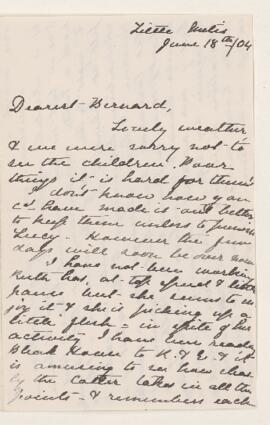 Little Metis
June 18th/04
Dearest Bernard,
Lovely weather
& we were sorry not to
see the children. Poor
things it is hard for them
I don't know how you
cd have made it out better
to keep them unless to
Lucy. However the few
days will soon be over now
I have not been working
Ruth has, at top speed &
but she seems to en
joy it & she is picking up a
little flesh - in spite of her
activity I have been reading
Bleak House to K. & E. & it
is amusing to see how
ly the latter takes in all the
points - & remembers each